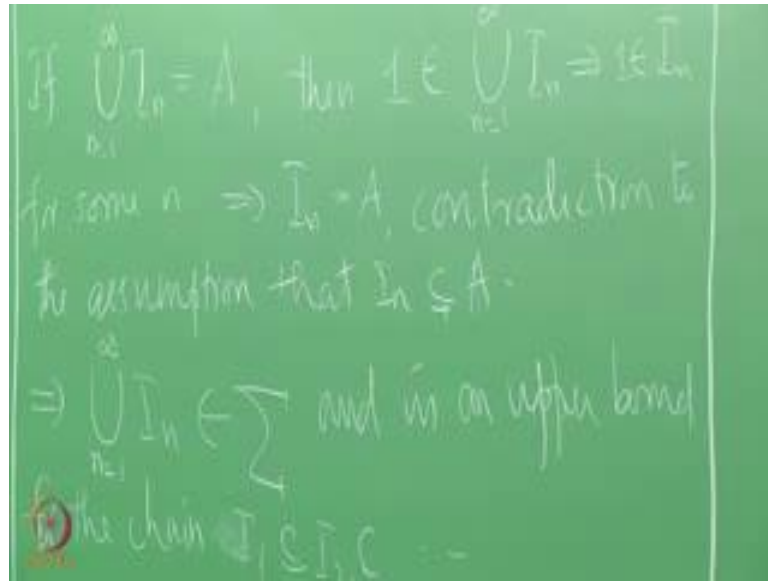 If ∞⋃n=1 In = A, then 1 ∈ ∞⋃n=1 In ⇒ 1 ∈ In
for some n ⇒ In = A, contradiction to
the assumption that In ⊊ A.
⇒ ∞⋃n=1 In ∈ Σ and is an upper bound
the chain I1 ⊆ I2 ⊂ ...